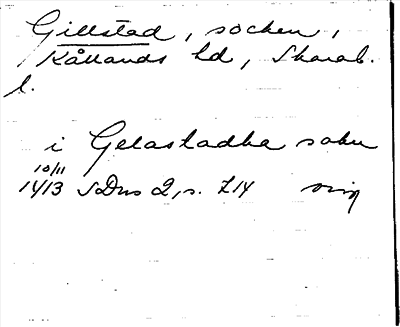 Gillstad, socken,
Kållands hd, Skarab.
l.
i Gelastadha sokn
10/11
1413 SDns 2, s. 714 orig